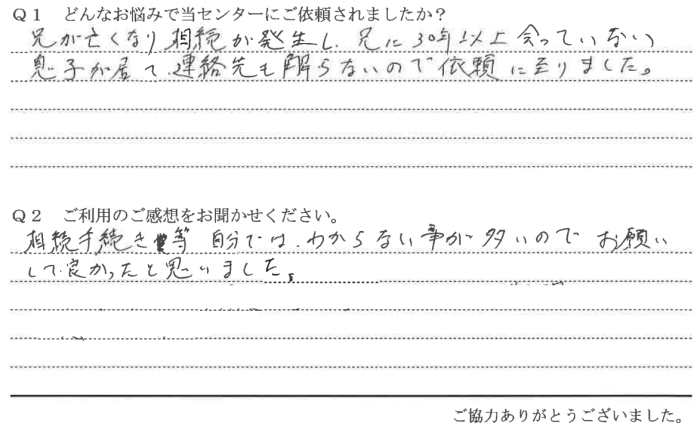 Q1 どんなお悩みで当センターにご依頼されましたか?
兄が亡くなり相続が発生し、兄に30年以上会っていない
息子が居て、連絡先も解らないので依頼に至りました。
Q2 ご利用のご感想をお聞かせください。
相続手続き等 自分では、わからない事が多いので お願い
して良かったと思いました。
ご協力ありがとうございました。